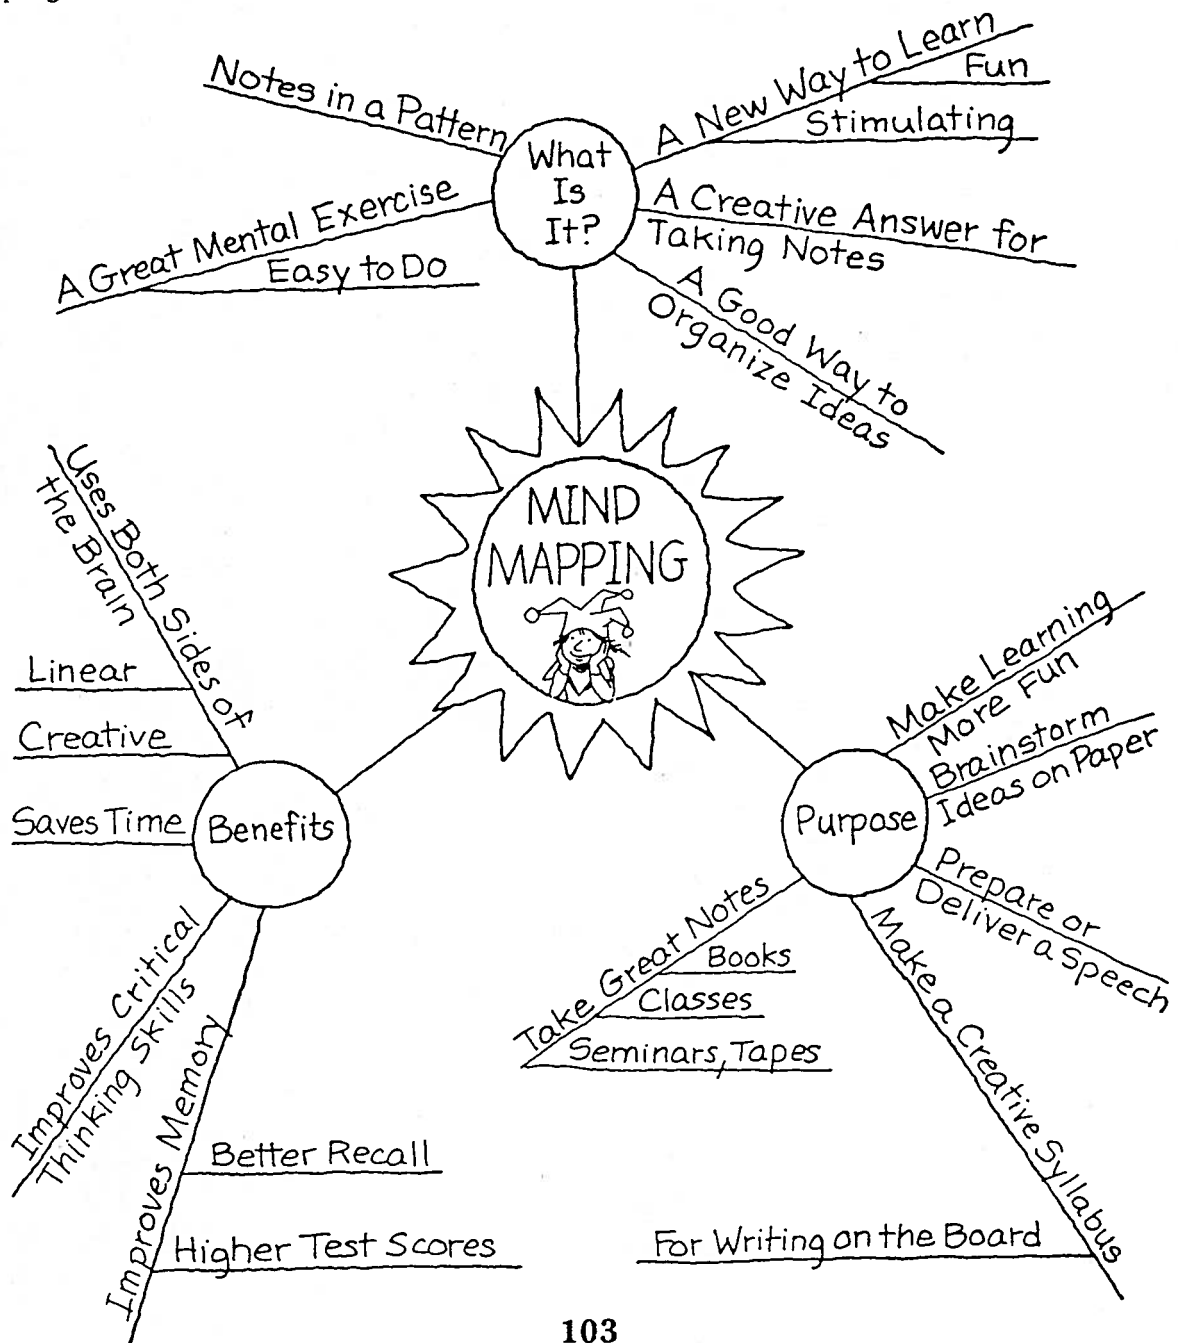 Notes in a Pattern
A Great Mental Exercise
Easy to Do
What
Is
It?
A New Way to Learn
Fun
Stimulating
A Creative Answer for
Taking Notes
A Good Way to
Organize Ideas
MIND
MAPPING
Uses Both Sides of
the Brain
Linear
Creative
Saves Time
Benefits
Improves Critical
Thinking Skills
Improves Memory
Better Recall
Higher Test Scores
Purpose
Make Learning
More Fun
Brainstorm
Ideas on Paper
Prepare or
Deliver a Speech
Make a Creative Syllabus
For Writing on the Board
Take Great Notes
Books
Classes
Seminars, Tapes
103